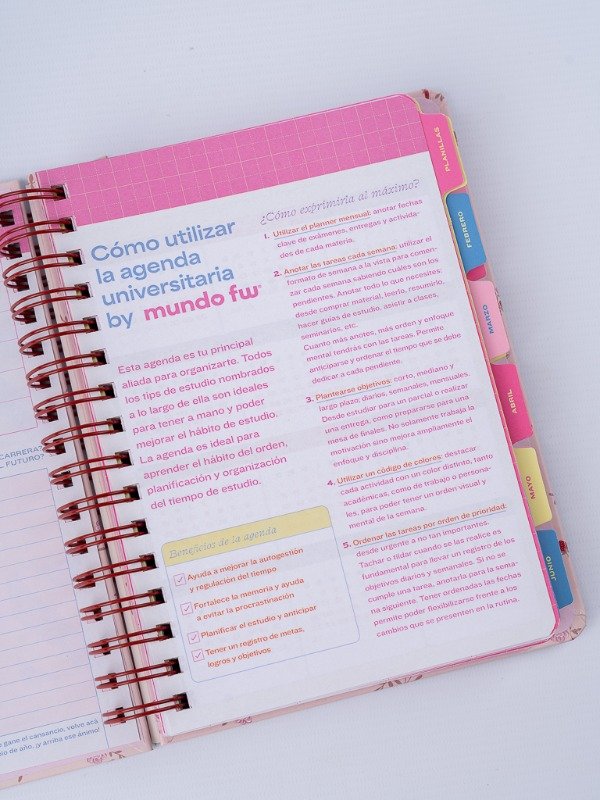 Cómo utilizar
la agenda
universitaria
by mundo fw
Esta agenda es tu principal
aliada para organizarte. Todos
los tips de estudio nombrados
a lo largo de ella son ideales
para tener a mano y poder
mejorar el hábito de estudio.
La agenda es ideal para
aprender el hábito del orden,
planificación y organización
del tiempo de estudio.
Beneficios de la agenda
Ayuda a mejorar la autogestión
y regulación del tiempo
Fortalece la memoria y ayuda
a evitar la procrastinación
Planificar el estudio y anticipar
Tener un registro de metas,
logros y objetivos
¿Cómo exprimirla al máximo?
1. Utilizar el planner mensual: anotar fechas
clave de exámenes, entregas y activida-
des de cada materia.
2. Anotar las tareas cada semana: utilizar el
formato de semana a la vista para comen-
zar cada semana sabiendo cuáles son los
pendientes. Anotar todo lo que necesites:
desde comprar material, leerlo, resumirlo,
hacer guías de estudio, asistir a clases,
seminarios, etc.
Cuanto más anotes, más orden y enfoque
mental tendrás con las tareas. Permite
anticiparse y ordenar el tiempo que se debe
dedicar a cada pendiente.
3. Plantearse objetivos: corto, mediano y
largo plazo: diarios, semanales, mensuales
Desde estudiar para un parcial o realizar
una entrega, como prepararse para una
mesa de finales. No solamente trabaja la
motivación sino mejora ampliamente el
enfoque y disciplina.
4. Utilizar un código de colores: destacar
cada actividad con un color distinto, tanto
académicas, como de trabajo o persona-
les, para poder tener un orden visual y
mental de la semana.
5. Ordenar las tareas por orden de prioridad:
desde urgente a no tan importantes.
Tachar o tildar cuando se las realice es
fundamental para llevar un registro de los
objetivos diarios y semanales. Si no se
cumple una tarea, anotarla para la sema-
na siguiente. Tener ordenadas las fechas
permite poder flexibilizarse frente a los
cambios que se presenten en la rutina.
PLANILLAS
FEBRERO
MARZO
ABRIL
MAYO
JUNIO
CARRERA?
FUTURO?
gane el cansancio, volvé acá
de año, ¡y arriba ese ánimo!